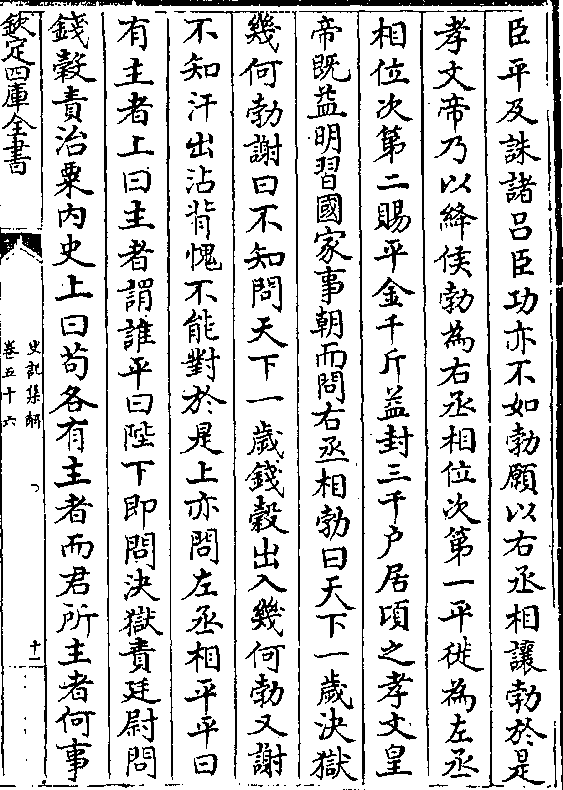 臣平及誅諸呂臣功亦不如勃願以右丞相讓勃於是
孝文帝乃以絳侯勃為右丞相位次第一平徙為左丞
相位次第二賜平金千斤益封三千户居頃之孝文皇
帝既益明習國家事朝而問右丞相勃曰天下一歲決獄
幾何勃謝曰不知問天下一歲錢穀出入幾何勃又謝
不知汗出沾背愧不能對於是上亦問左丞相平平曰
有主者上曰主者謂誰平曰陛下即問決獄責廷尉問
錢穀責治粟内史上曰苟各有主者而君所主者何事
欽定四庫全書
史記集解
卷五十六
十一